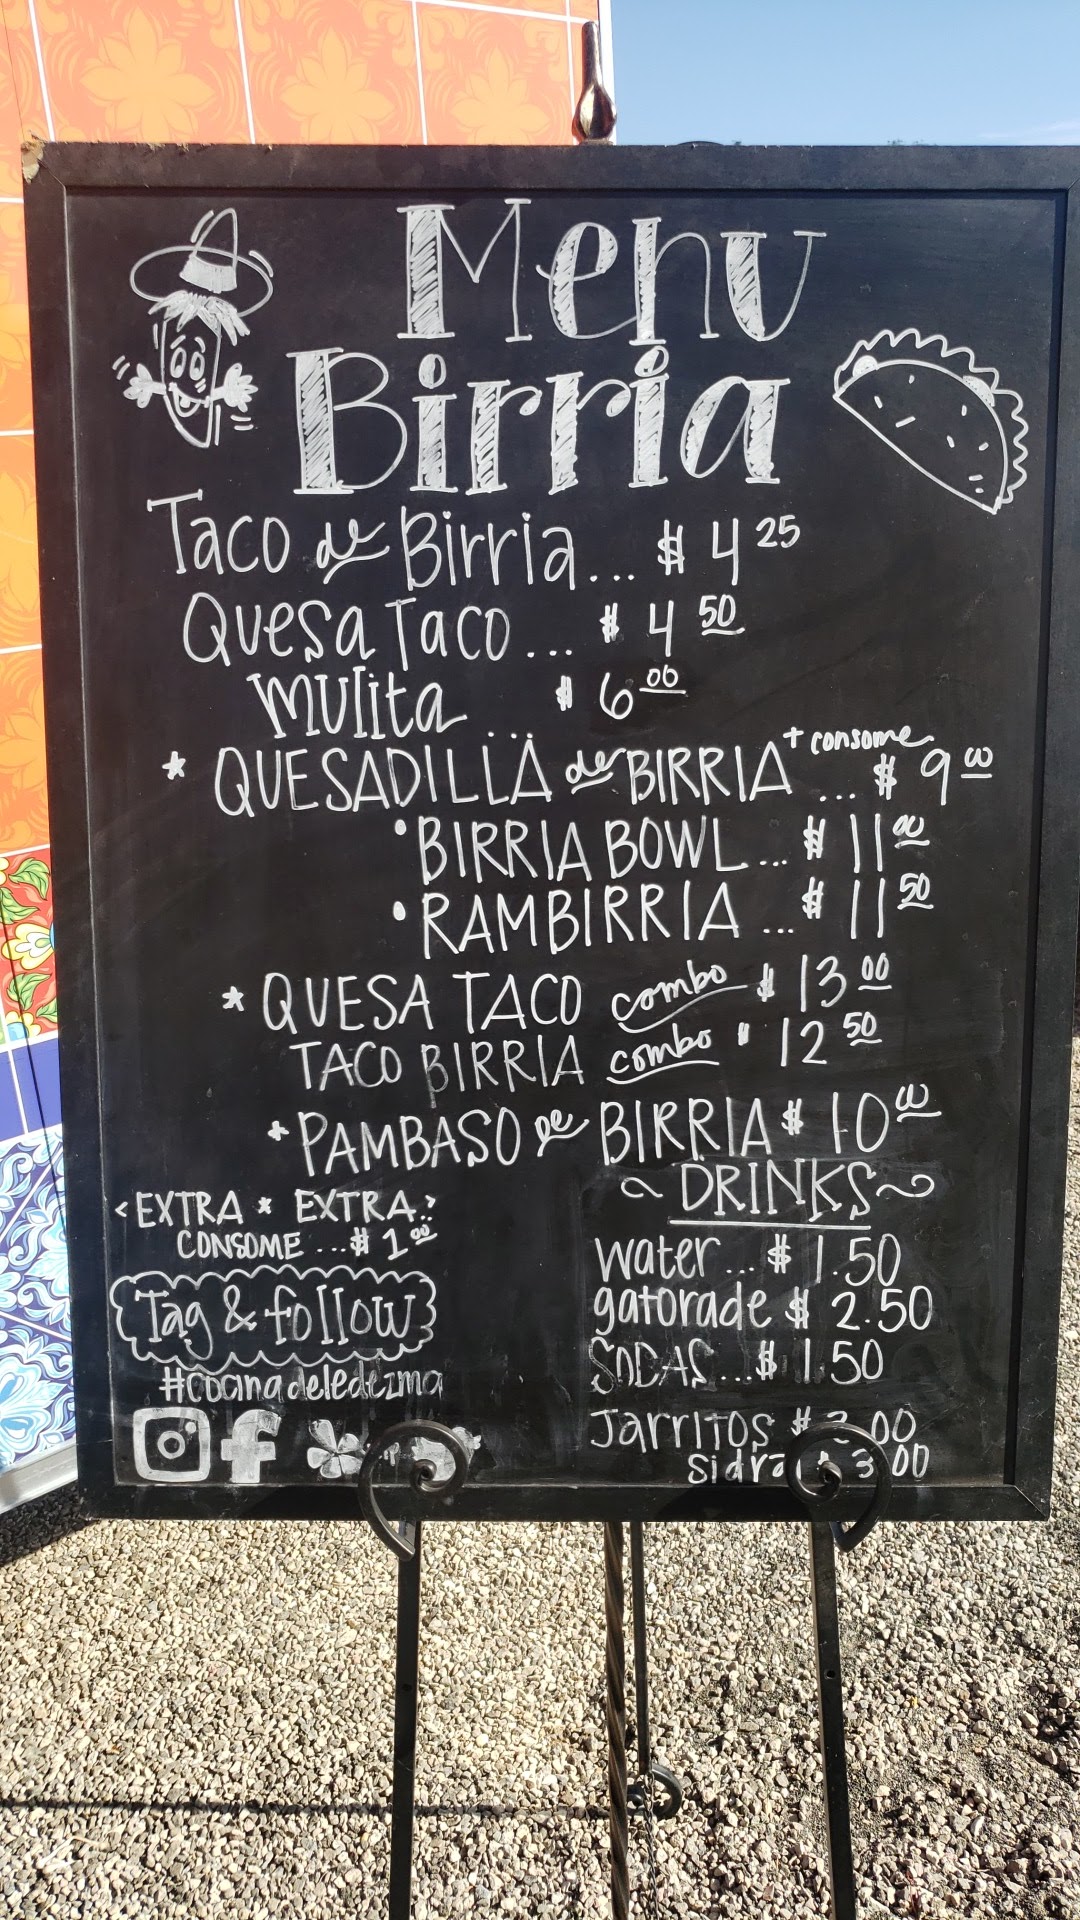 Menu
Birria
Taco de Birria... $ 4 25
Quesa Taco... $ 4 50
Mulita ... $ 6 00
* QUESADILLA de BIRRIA + consome ... $ 9 00
• BIRRIA BOWL... $ 11 00
• RAMBIRRIA ... $ 11 50
* QUESA TACO combo $ 13 00
TACO BIRRIA combo $ 12 50
* PAMBASO de BIRRIA $ 10 00
<EXTRA * EXTRA>
CONSOME ...$ 1 00
Tag & follow
#cocinadeledezma
~ DRINKS ~
water... $ 1.50
gatorade $ 2.50
SODAS...$ 1.50
Jarritos $ 3.00
sidral $ 3.00